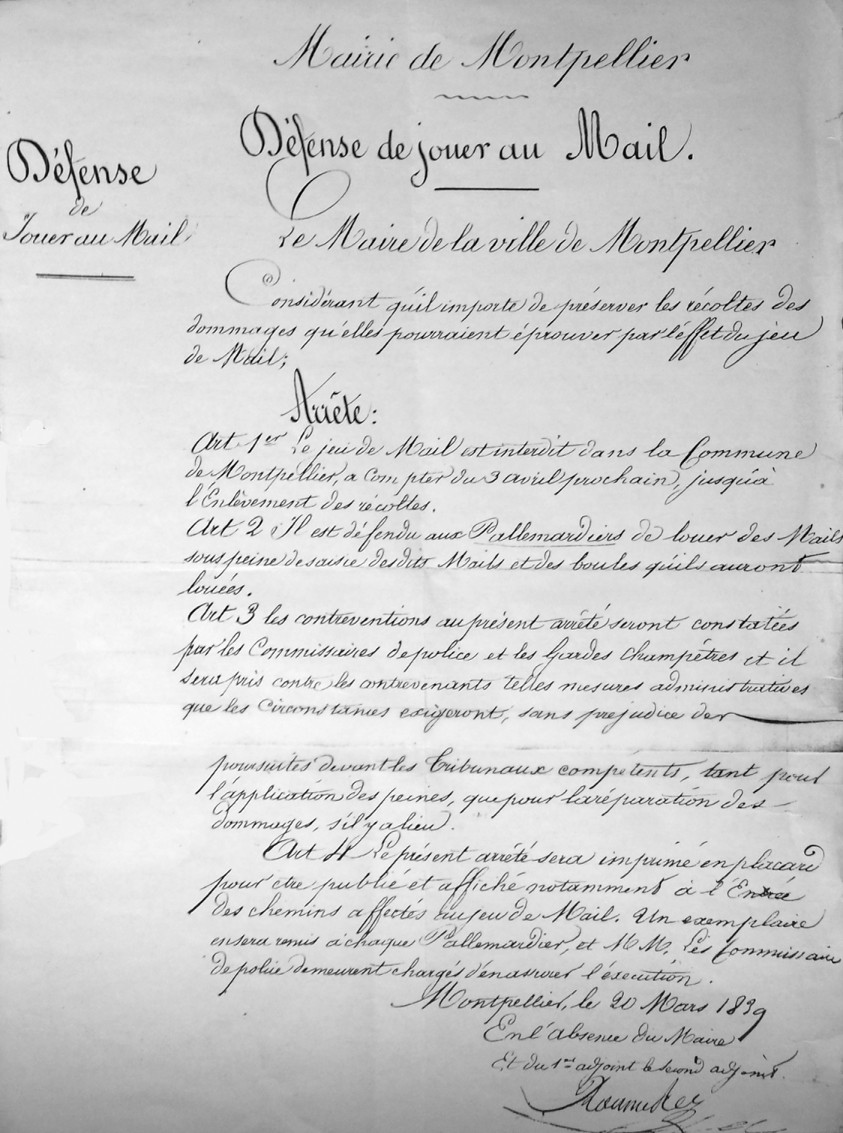 Mairie de Montpellier
Défense de jouer au Mail.
Défense
de
Jouer au Mail
Le Maire de la ville de Montpellier
Considérant qu'il importe de préserver les récoltes des
dommages qu'elles pourraient éprouver par l'effet du jeu
de Mail;
Arrête:
Art 1er Le jeu de Mail est interdit dans la Commune
de Montpellier, a compter du 3 avril prochain, jusqu'à
l'Enlèvement des récoltes.
Art 2 Il est défendu aux Pallemardiers de louer des Mails
sous peine de saisie des dits Mails et des boules qu'ils auront
louées.
Art 3 les contreventions au présent arrêté seront constatées
par les Commissaires de police et les Gardes Champêtres et il
sera pris contre les contrevenants telles mesures administratives
que les Circonstances exigeront, sans préjudice des
poursuites devant les Tribunaux compétents, tant pour
l'application des peines, que pour la réparation des
dommages, s'il y a lieu.
Art 4 Le présent arrêté sera imprimé en placard
pour être publié et affiché notamment à l'Entrée
des chemins affectés au jeu de Mail. Un exemplaire
en sera remis à chaque Pallemardier, et MM. Les Commissaire
de police demeurent chargés d'en assurer l'éxecution.
Montpellier, le 20 Mars 1839
En l'absence du Maire
Et du 1er adjoint le second adjoint.